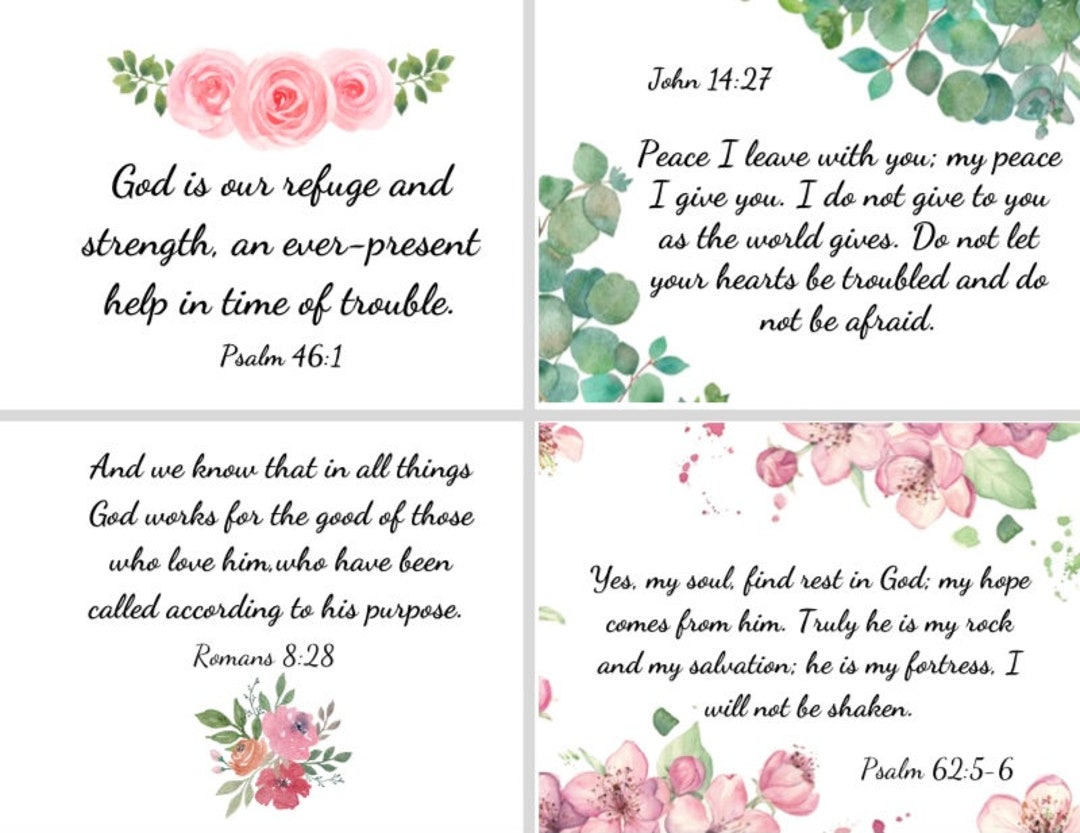 God is our refuge and
strength, an ever-present
help in time of trouble.
Psalm 46:1
John 14:27
Peace I leave with you; my peace
I give you. I do not give to you
as the world gives. Do not let
your hearts be troubled and do
not be afraid.
And we know that in all things
God works for the good of those
who love him,who have been
called according to his purpose.
Romans 8:28
Yes, my soul, find rest in God; my hope
comes from him. Truly he is my rock
and my salvation; he is my fortress, I
will not be shaken.
Psalm 62:5-6